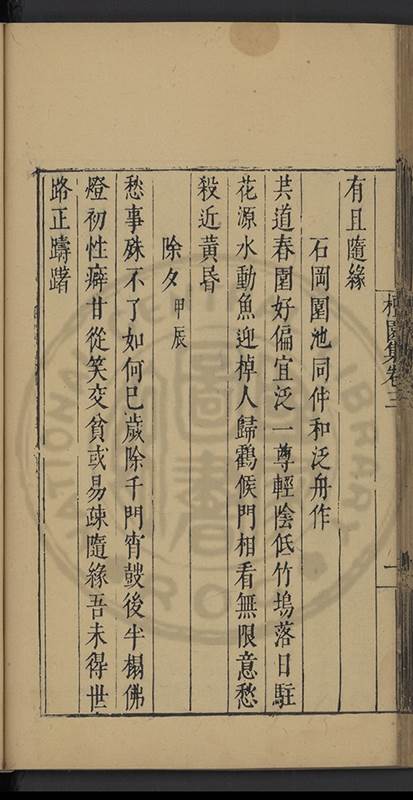 有且隨緣
石岡園池同仲和泛舟作
共道春園好偏宜泛一尊輕陰低竹塢落日駐
花源水動魚迎棹人歸鶴候門相看無限意愁
殺近黃昏
除夕甲辰
愁事殊不了如何巳歲除千門宵鼓後半榻佛
燈初性癖甘從笑交貧或易疎隨緣吾未得世
路正躊躇
園集卷三